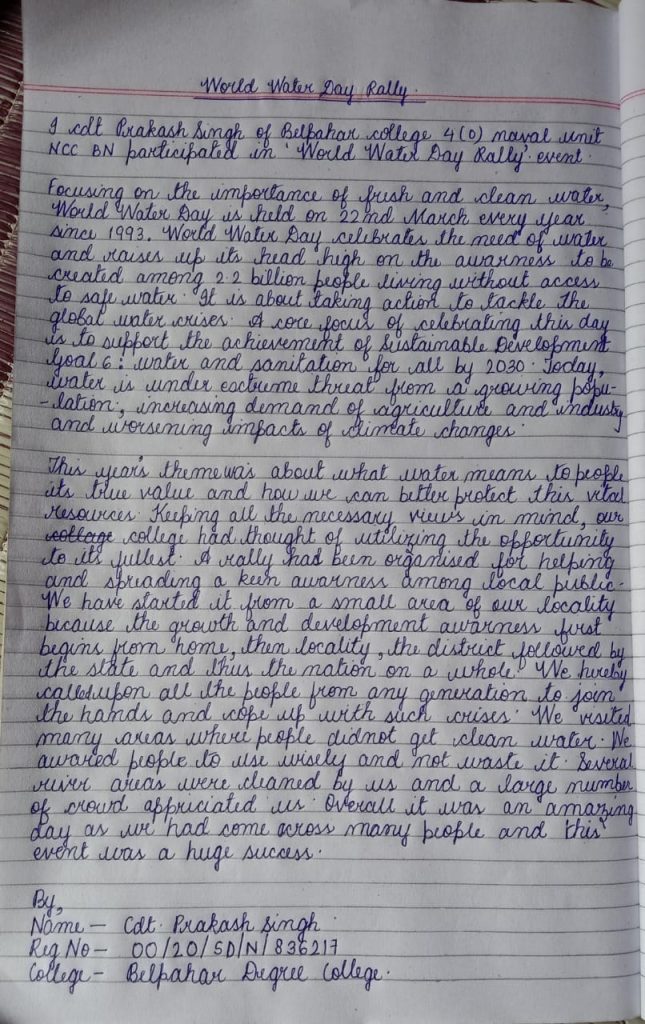 World Water Day Rally.
I cdt Prakash Singh of Belpahar college 4(O) naval unit
NCC BN participated in 'World Water Day Rally' event.
Focusing on the importance of fresh and clean water,
World Water Day is held on 22nd March every year
since 1993. World Water Day celebrates the need of water
and raises up its head high on the awarness to be
created among 2.2 billion people living without access
to safe water. It is about taking action to tackle the
global water crises. A core focus of celebrating this day
is to support the achievement of Sustainable Development
Goal 6: water and sanitation for all by 2030. Today,
water is under exctreme threat from a growing popu-
-lation, increasing demand of agriculture and industry
and worsening impacts of climate changes.
This year's theme was about what water means to people
its true value and how we can better protect this vital
resources. Keeping all the necessary views in mind, our
collage college had thought of utilizing the opportunity
to its fullest. A rally had been organised for helping
and spreading a keen awarness among local public.
We have started it from a small area of our locality
because the growth and development awarness first
begins from home, then locality, the district followed by
the state and thus the nation on a whole. We hereby
called upon all the people from any generation to join
the hands and cope up with such crises. We visited
many areas where people didnot get clean water. We
awared people to use wisely and not waste it. Several
river areas were cleaned by us and a large number
of crowd appriciated us. Overall it was an amazing
day as we had come across many people and this
event was a huge success.
By,
Name - Cdt. Prakash Singh
Reg No - OO/20/SD/N/836217
College - Belpahar Degree College.